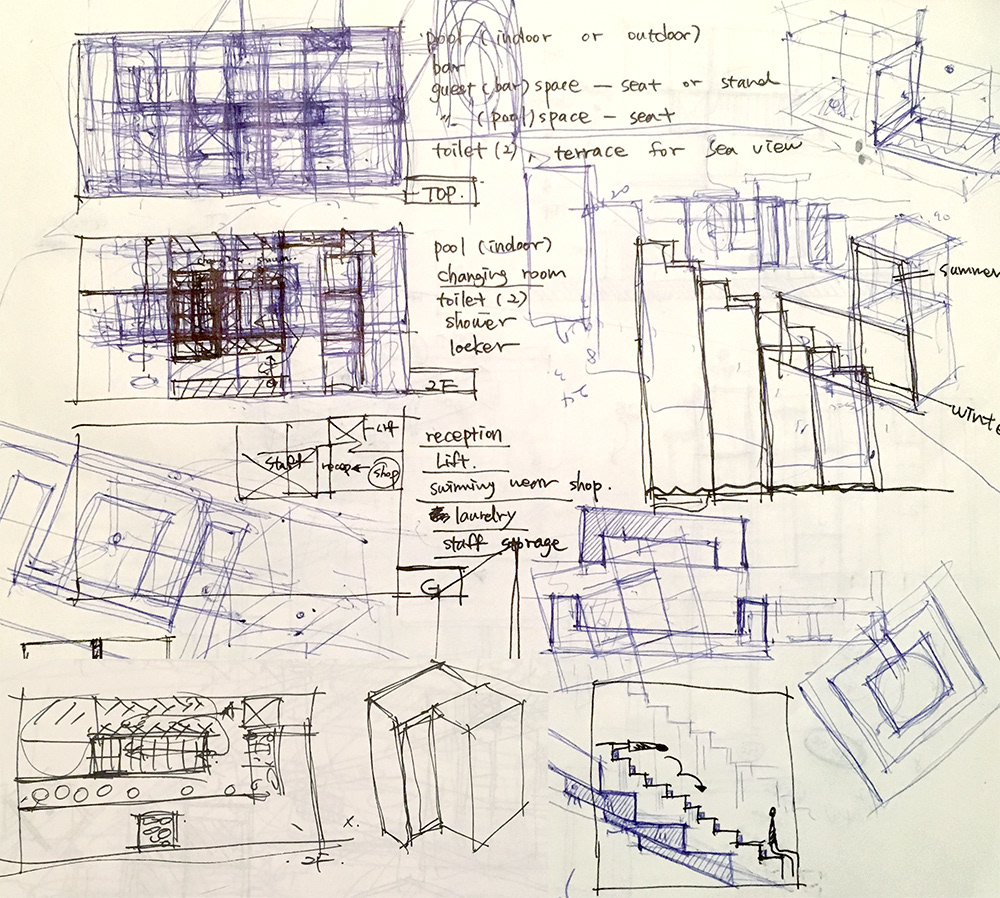 pool (indoor or outdoor)
bar
guest (bar) space - seat or stand
" (pool) space - seat
toilet (2), terrace for sea view
TOP.
20
90
summer
pool (indoor)
changing room
toilet (2)
shower
locker
2F
8
24
winte
Lift
staff
recep
shop
reception
Lift.
swimming wear shop.
laundry
staff storage
G
x.
2F.